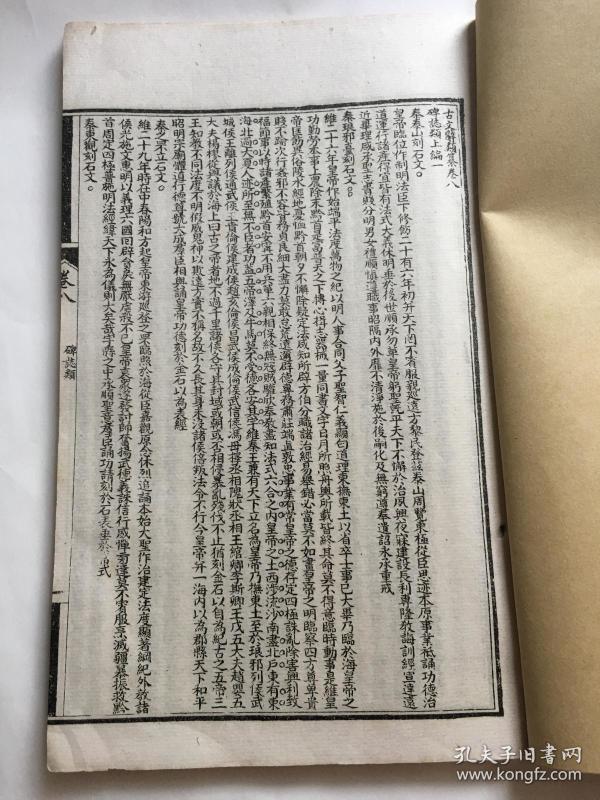 古文辭類纂卷八
碑誌類上編一
秦泰山刻石文。
皇帝臨位作制明法臣下修飭二十有六年初并天下罔不賓服親巡遠方黎民登茲泰山周覽東極從臣思迹本原事業祗誦功德治
道運行諸產得宜皆有法式大義休明垂於後世順承勿革皇帝躬聖既平天下不懈於治夙興夜寐建設長利專隆教誨訓經宣達遠
近畢理咸承聖志貴賤分明男女禮順慎遵職事昭隔內外靡不清淨施於後嗣化及無窮遵奉遺詔永承重戒
秦琅邪臺刻石文。
維二十六年皇帝作始端平法度萬物之紀以明人事合同父子聖智仁義顯白道理東撫東土以省卒士事已大畢乃臨於海皇帝之
功勤勞本事上農除末黔首是富普天之下摶心揖志器械一量同書文字日月所照舟輿所載皆終其命莫不得意應時動事是維皇
帝匡飭異俗陵水經地憂恤黔首朝夕不懈除疑定法咸知所辟方伯分職諸治經易舉錯必當莫不如畫皇帝之明臨察四方尊卑貴
賤不踰次行姦邪不容皆務貞良細大盡力莫敢怠荒遠邇辟隱專務肅莊端直敦忠事業有常皇帝之德存定四極誅亂除害興利致
福節事以時諸產繁殖黔首安寧不用兵革六親相保終無寇賊驩欣奉教盡知法式六合之內皇帝之土西涉流沙南盡北戶東有東
海北過大夏人迹所至無不臣者功蓋五帝澤及牛馬莫不受德各安其宇維秦王兼有天下立名為皇帝乃撫東土至於琅邪列侯武
城侯王離列侯通武侯王賁倫侯建成侯趙亥倫侯昌武侯成倫侯武信侯馮毋擇丞相隗狀丞相王綰卿李斯卿王戊五大夫趙嬰五
大夫楊樛從與議於海上曰古之帝者地不過千里諸侯各守其封域或朝或否相侵暴亂殘伐不止猶刻金石以自為紀古之五帝三
王知教不同法度不明假威鬼神以欺遠方實不稱名故不久長其身未沒諸侯倍叛法令不行今皇帝并一海內以為郡縣天下和平
昭明宗廟體道行德尊號大成羣臣相與誦皇帝功德刻於金石以為表經
秦之罘立石文。
維二十九年時在中春陽和方起皇帝東游巡登之罘臨照於海從臣嘉觀原念休烈追誦本始大聖作治建定法度顯著綱紀外教諸
侯光施文惠明以義理六國回辟貪戾無厭虐殺不已皇帝哀眾遂發討師奮揚武德義誅信行威燀旁達莫不賓服烹滅彊暴振救黔
首周定四極普施明法經緯天下永為儀則大矣哉宇縣之中承順聖意羣臣誦功請刻於石表垂於常式
秦東觀刻石文。
卷八
碑誌類
孔夫子旧书网
www.kongfz.com